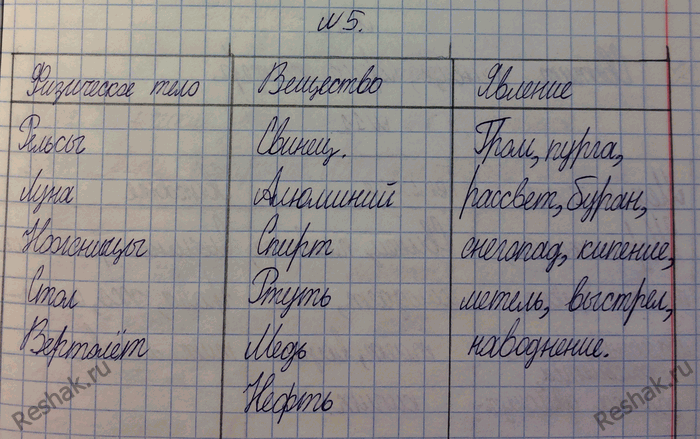 №5.
Физическое тело Вещество Явление
Рельсы Свинец. Гром, пурга,
Луна Алюминий рассвет, буран,
Ножницы Спирт снегопад, кипение,
Стол Ртуть метель, выстрел,
Вертолёт Медь наводнение.
Нефть
Reshak.ru
Reshak.ru